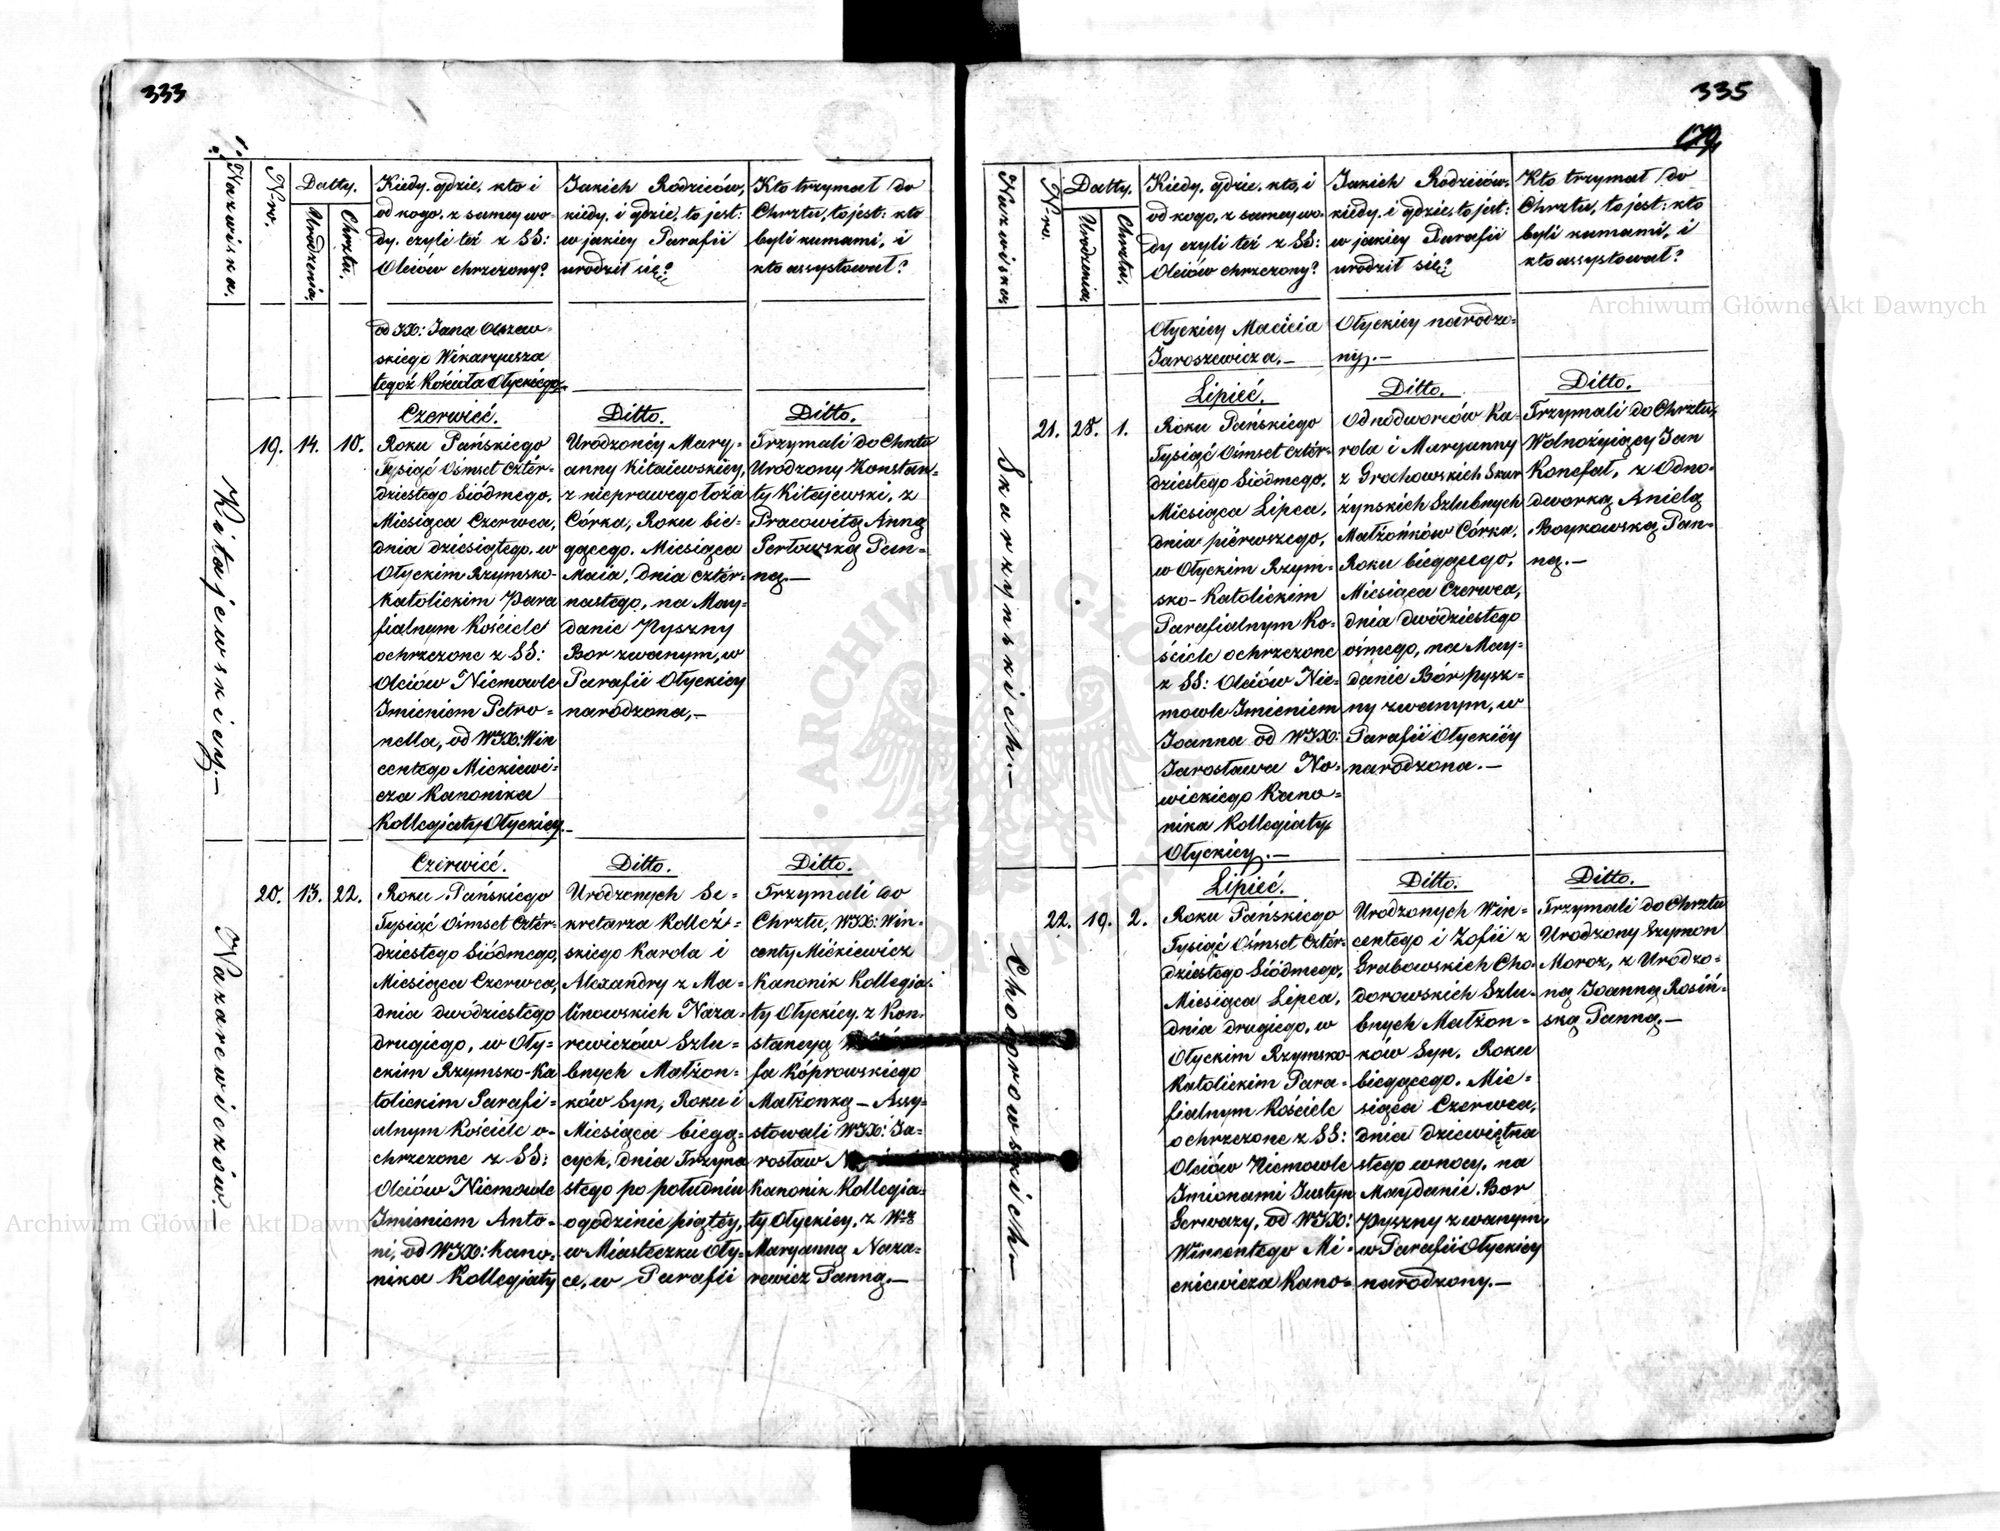 333
Nazwiska.
Nro.
Datty.
Urodzenia
Chrztu.
Kiedy, gdzie, kto i
od kogo, z samey wo-
dy, czyli też z SS:
Oleiów chrzczony?
Jakich Rodziców,
kiedy, i gdzie, to jest:
w jakiey Parafii
urodził się?
Kto trzymał do
Chrztu, to jest: kto
byli kumami, i
kto assystował?
od JX: Jana Olszew-
skiego Wikaryusza
tegoż Kościoła Ołyckiego.
Kitajewskiey.-
19.
14.
10.
Czerwieć.
Roku Pańskiego
Tysiąć Ośmset Cztér-
dziestego Siódmego,
Miesiąca Czerwca,
dnia dziesiątego, w
Ołyckim Rzymsko-
Katolickim Para
fialnym Kościele
ochrzczone z SS:
Oleiów Niemowle
Imieniem Petro-
nella, od WJX: Win
centego Mickiewi-
cza Kanonika
Kollegiaty Ołyckiey.-
Ditto.
Urodzonéy Mary-
anny Kitaiewskiéy,
z nieprawego łoża
Córka, Roku bie-
gącego, Miesiąca
Maia, dnia cztér-
nastego, na May-
danie Pyszny
Bor zwanym, w
Parafii Ołyckiéy
narodzona,-
Ditto.
Trzymali do Chrztu
Urodzony Konstan-
ty Kitajewski, z
Pracowitą Anną
Perłowską Pan-
ną.-
Nazarewiczów-
20.
13.
22.
Czerwieć.
Roku Pańskiego
Tysiąć Ośmset Cztér-
dziestego Siódmego,
Miesiąca Czerwca,
dnia dwódziestego
drugiego, w Oły-
ckim Rzymsko-Ka
tolickim Parafi-
alnym Kościele o-
chrzczone z SS:
Oleiów Niemowle
Imieniem Anto-
ni, od WJX: Kano-
nika Kollegiaty
Ditto.
Urodzonych Se-
kretarza Kolleż-
skiego Karola i
Alexandry z Ma-
linowskich Naza-
rewiczów Szlu-
bnych Małżon-
ków Syn, Roku i
Miesiąca biegą-
cych, dnia Trzyna
stego po południu
o godzinie piątéy,
w Miasteczku Oły-
ce, w Parafii
Ditto.
Trzymali do
Chrztu, WJX: Win-
centy Mickiewicz
Kanonik Kollegia-
ty Ołyckiey, z Kon-
stancyą
fa Kóprowskiego
Małżonką - Assy-
stowali WJX: Ja-
rosław
Kanonik Kollegia-
ty Ołyckiey, z
Maryanną Naza-
rewicz Panną.-
335
179
Nazwiska
Nro.
Datty.
Urodzenia
Chrztu.
Kiedy, gdzie, kto, i
od kogo, z samey wo-
dy czyli też z SS:
Oleiów chrzczony?
Jakich Rodziców,
kiedy, i gdzie, to jest:
w jakiey Parafii
urodził się?
Kto trzymał do
Chrztu, to jest: kto
byli kumami, i
kto assystował?
Ołyckiey Macieia
Jaroszewicza.-
Ołyckiey narodzo-
ny.-
Skarzynskich.-
21.
28.
1.
Lipieć.
Roku Pańskiego
Tysiąć Ośmset Cztér-
dziestego Siódmego,
Miesiąca Lipca,
dnia piérwszego,
w Ołyckim Rzym-
sko-Katolickim
Parafialnym Ko-
ściele ochrzczone
z SS: Oleiów Nie-
mowle Imieniem
Joanna od WJX:
Jarosława No-
wickiego Kano-
nika Kollegiaty
Ołyckiey.-
Ditto.
Odnodworców Ka-
rola i Maryanny
z Grochowskich Skar
żynskich Szlubnych
Małżónków Córka,
Roku biegącego,
Miesiąca Czerwca,
dnia dwódziestego
ośmego, na May-
danie Bór pysz-
ny zwanym, w
Parafii Ołyckiéy
narodzona.-
Ditto.
Trzymali do Chrztu,
Wolnożyiący Jan
Konefał, z Odno-
dworką Anielą
Boykowską Pan-
ną.-
Chodorowskich-
22.
19.
2.
Lipieć.
Roku Pańskiego
Tysiąć Ośmset Cztér-
dziestego Siódmego,
Miesiąca Lipca,
dnia drugiego, w
Ołyckim Rzymsko-
Katolickim Para-
fialnym Kościele
ochrzczone z SS:
Oleiów Niemowle
Imionami Justyn
Gerwazy, od WJX:
Wincentego Mi-
ckiewicza Kano-
Ditto.
Urodzonych Win-
centego i Zofii z
Grabowskich Cho-
dorowskich Szlu-
bnych Małżon-
ków Syn, Roku
biegącego, Mie-
siąca Czerwca,
dnia dziewiętna
stego w nocy, na
Maydanie Bor
Pyszny zwanym,
w Parafii Ołyckiey
narodzony.-
Ditto.
Trzymali do Chrztu
Urodzony Szymon
Moroz, z Urodzo-
ną Joanną Rosiń-
ską Panną.-
Archiwum Główne Akt Dawnych
Archiwum Główne Akt Dawnych